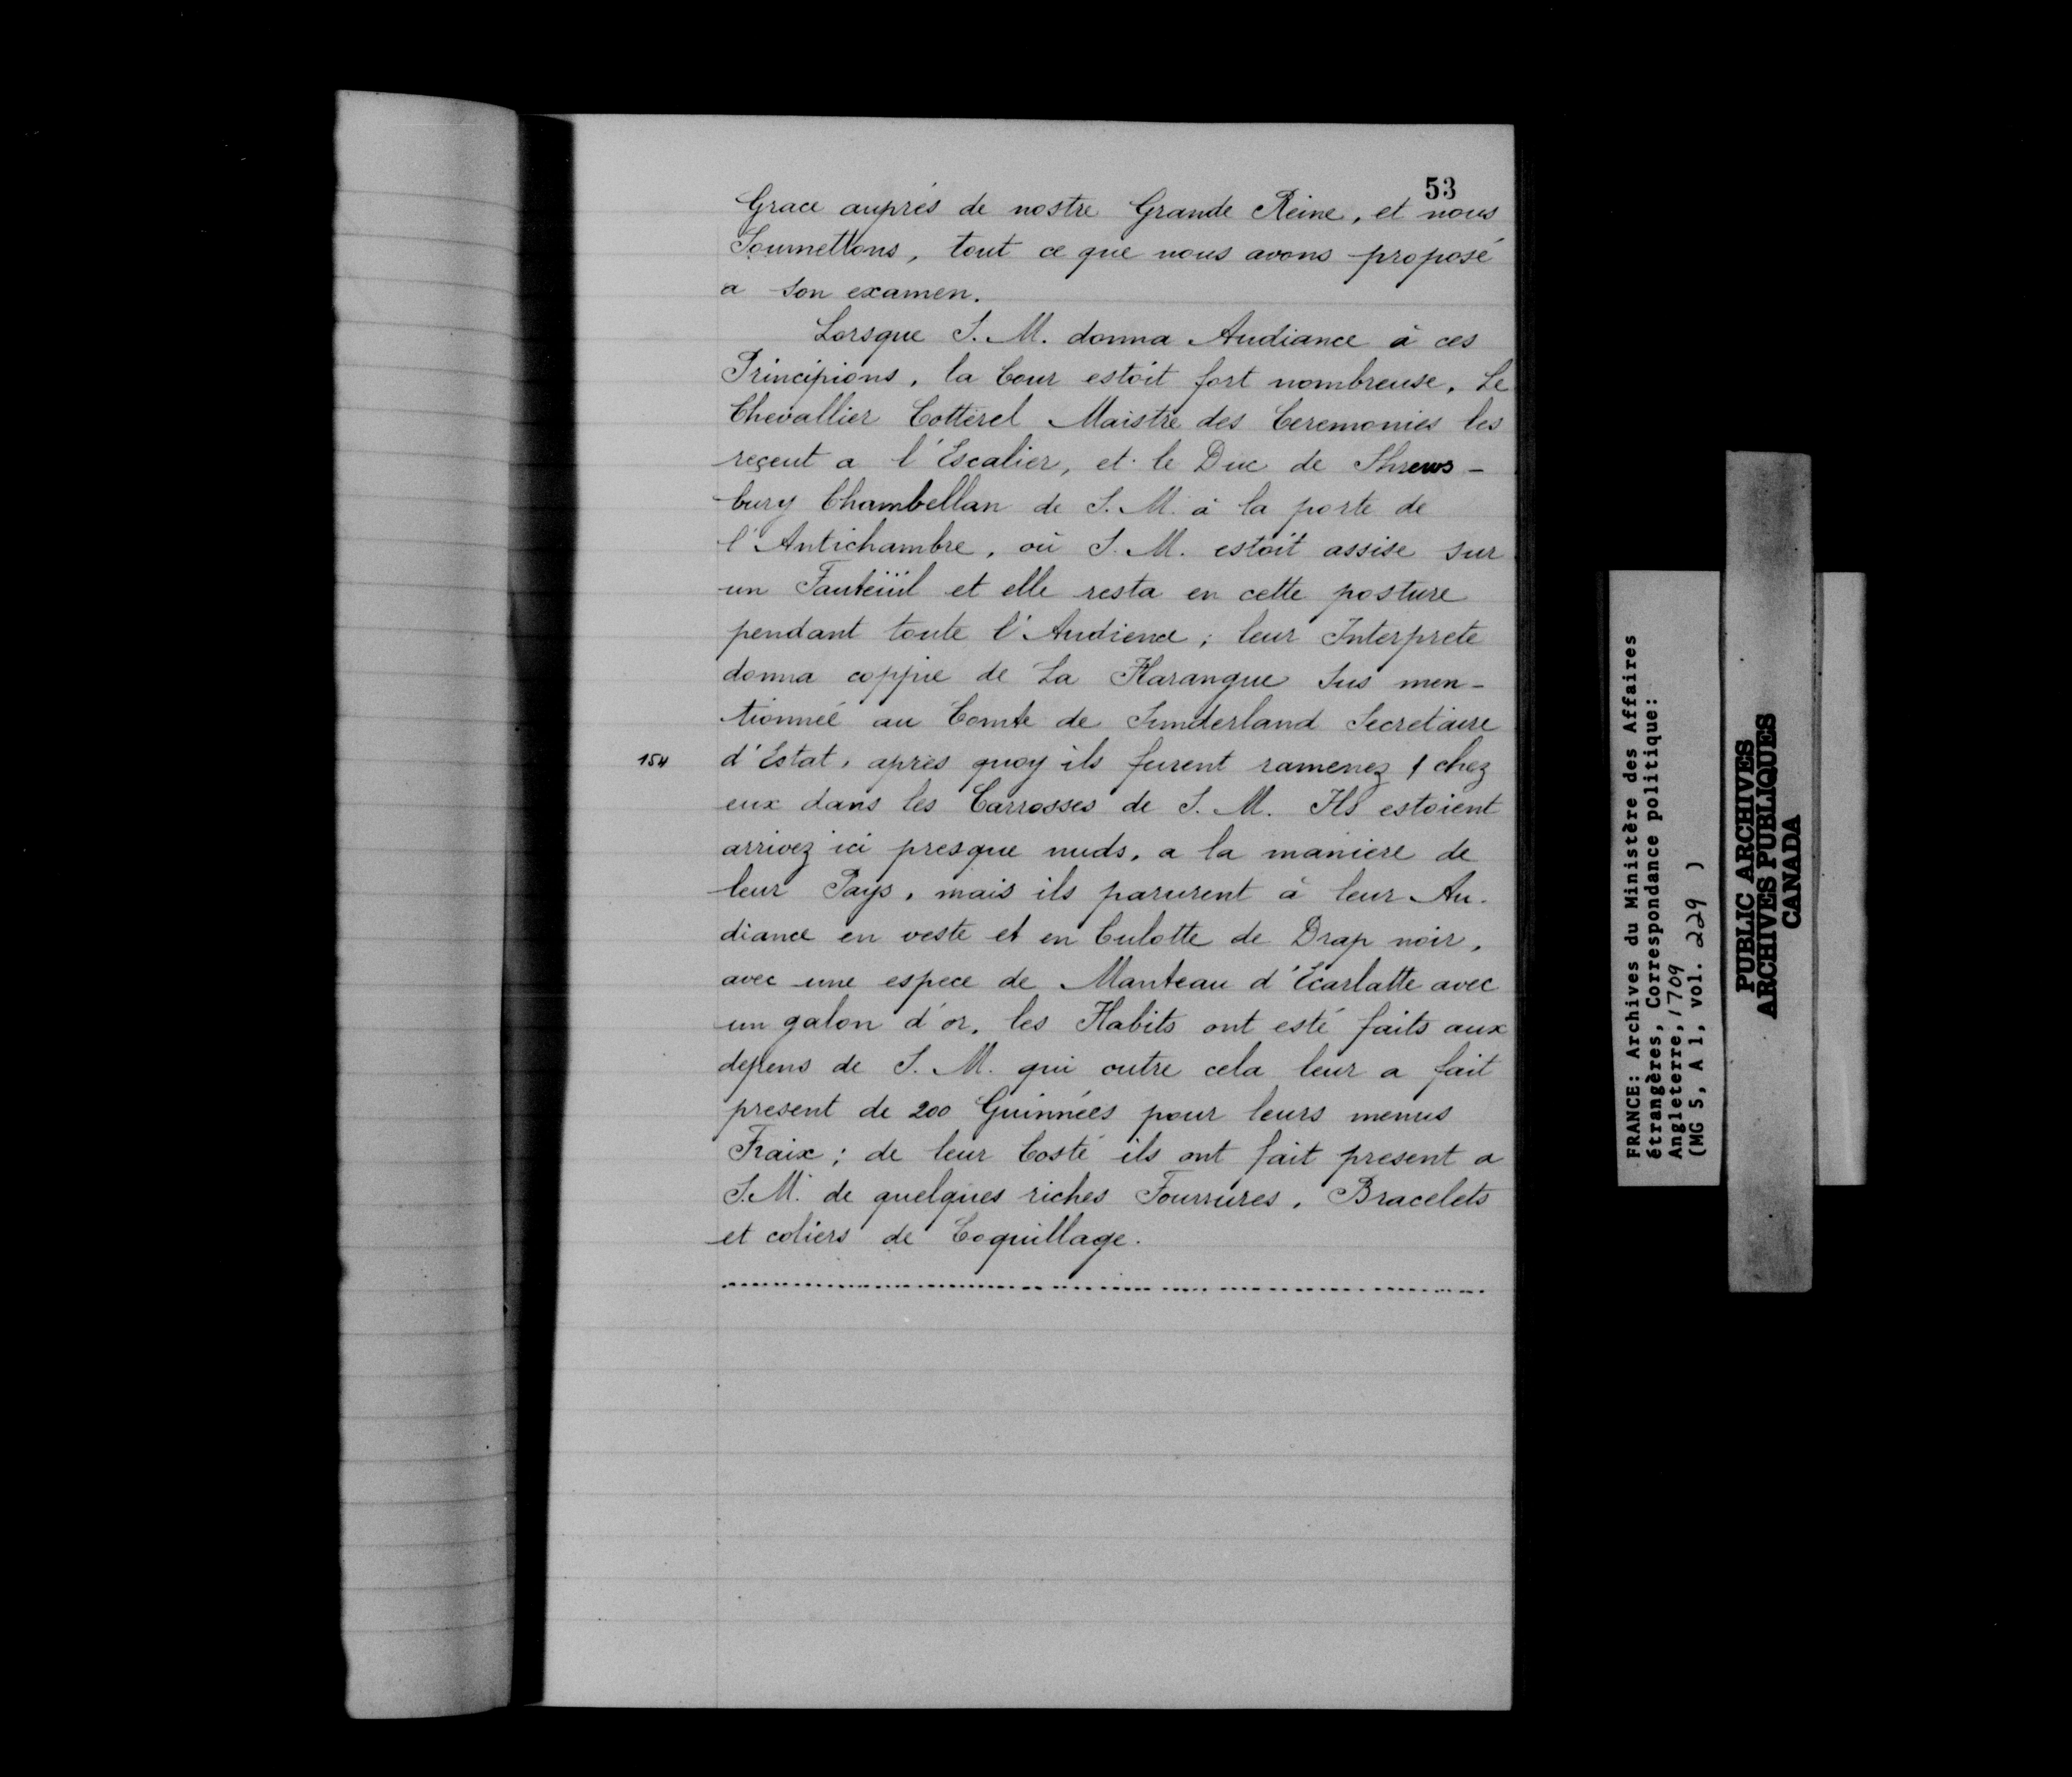 53
Grace auprés de nostre Grande Reine, et nous
Soumettons, tout ce que nous avons proposé
a son examen.
Lorsque S. M. donna Audiance à ces
Principions, la Cour estoit fort nombreuse, Le
Chevallier Cotterel Maistre des Ceremonies les
reçeut a l'Escalier, et le Duc de Shrews-
bury Chambellan de S. M. à la porte de
l'Antichambre, où S. M. estoit assise sur
un Fauteüil et elle resta en cette posture
pendant toute l'Audience; leur Interprete
donna coppie de La Harangue sus men-
tionnée au Comte de Sunderland Secretaire
154 d'Estat, après quoy ils furent ramenez / chez
eux dans les Carrosses de S. M. Ils estoient
arrivez ici presque nuds, a la maniere de
leur Pays, mais ils parurent à leur Au-
diance en veste et en Culotte de Drap noir,
avec une espece de Manteau d'Ecarlatte avec
un galon d'or, les Habits ont esté faits aux
depens de S. M. qui outre cela leur a fait
present de 200 Guinnées pour leurs menus
Fraix; de leur Costé ils ont fait present a
S. M. de quelques riches Fourrures, Bracelets
et coliers de Coquillage.
FRANCE: Archives du Ministère des Affaires
étrangères, Correspondance politique:
Angleterre, 1709
(MG 5, A 1, vol. 229 )
PUBLIC ARCHIVES
ARCHIVES PUBLIQUES
CANADA